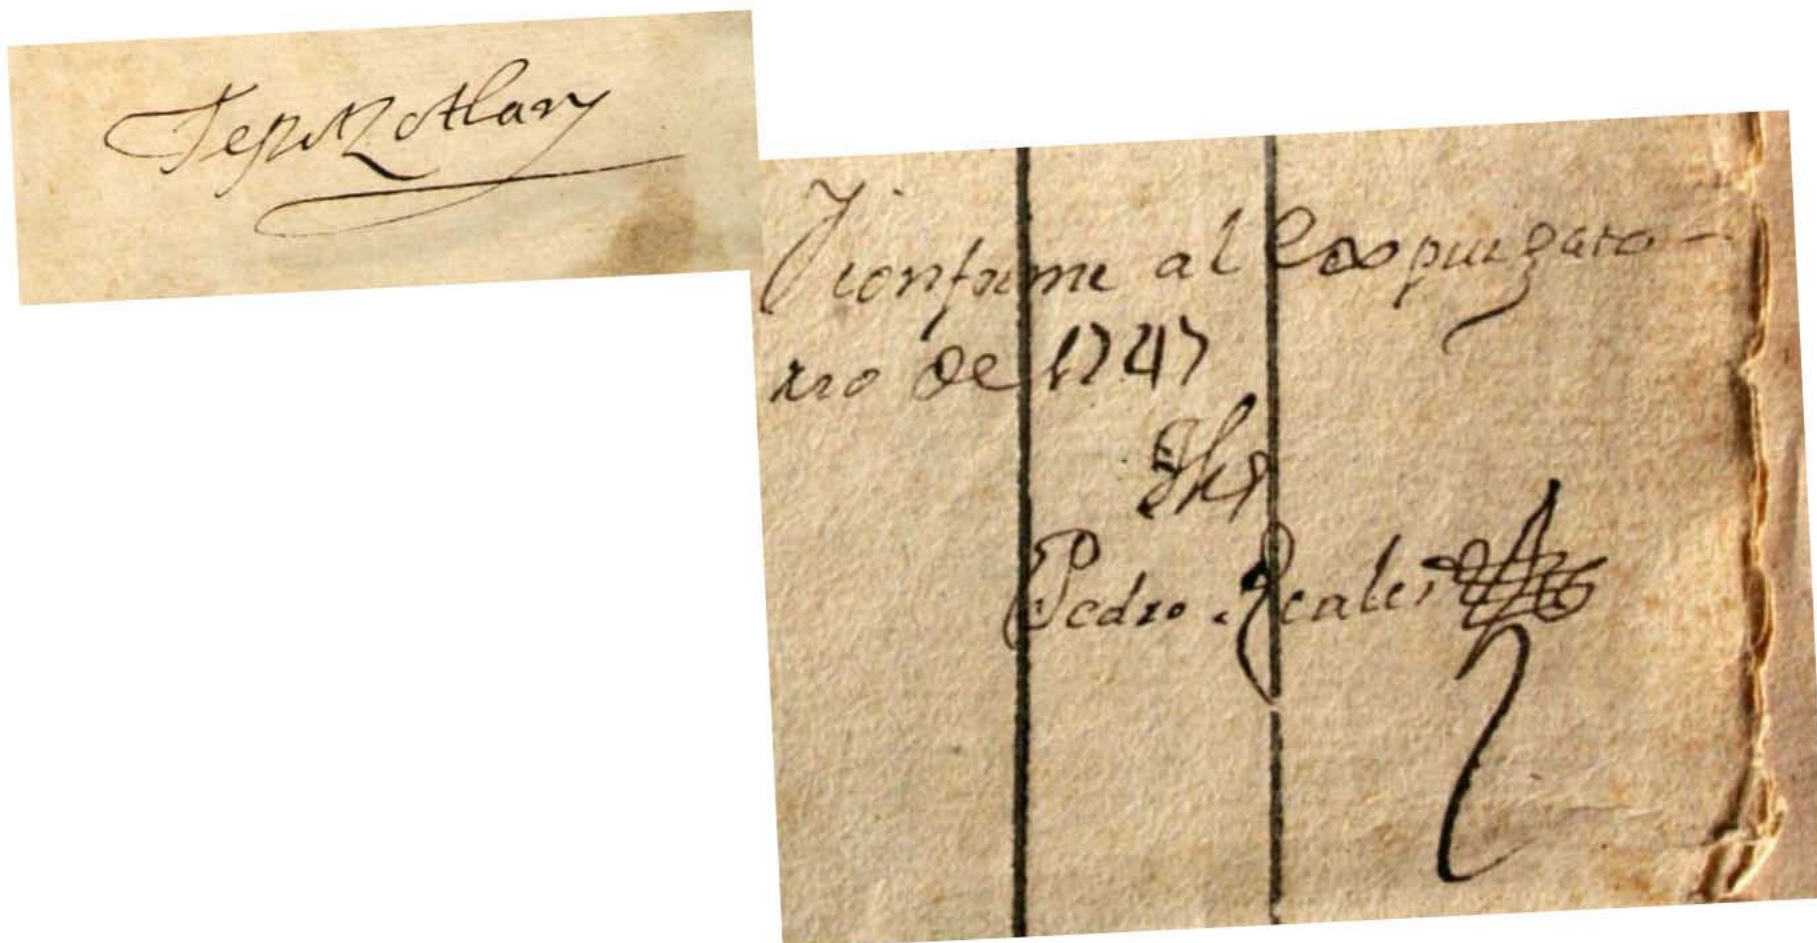 Tepotzotlan
Vi conforme al Expurgato-
rio de 1747
Jhs
Pedro Reales